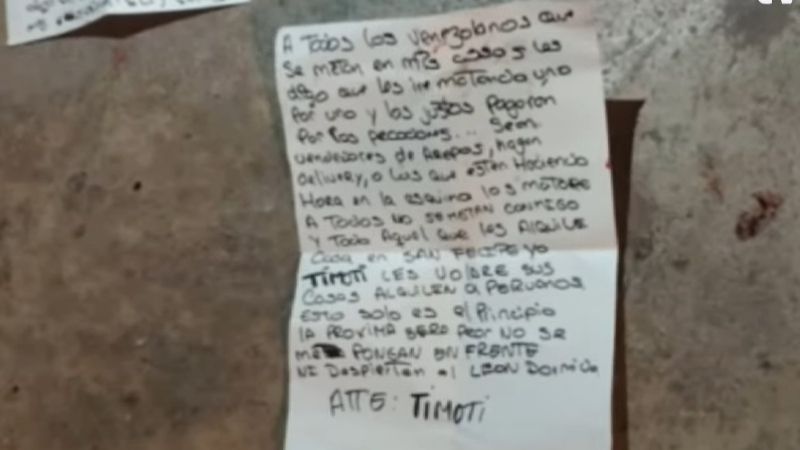 A TODOS LOS VENEZOLANOS QUE
SE METAN EN MIS CASAS LES
DIGO QUE LES IRE MATANDO UNO
POR UNO Y LOS JUSTOS PAGARAN
POR LOS PECADORES... SEAN
VENDEDORES DE AREPAS, HAGAN
DELIVERY, O LAS QUE ESTEN HACIENDO
HORA EN LA ESQUINA LOS MATARE
A TODOS NO SE METAN CONMIGO
Y TODO AQUEL QUE LES ALQUILE
CASA EN SAN FELIPE YO
TIMOTI LES VOLARE SUS
CASAS ALQUILEN A PERUANOS
ESTO SOLO ES EL PRINCIPIO
LA PROXIMA SERA PEOR NO SE
ME PONGAN EN FRENTE
NI DESPIERTEN AL LEON DORMIDO
ATTE: TIMOTI